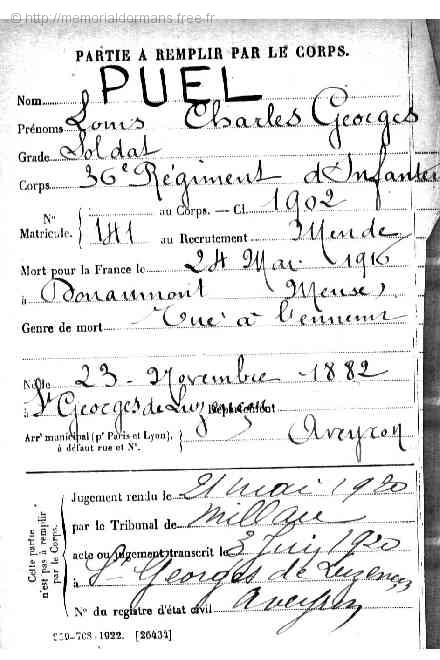 © http://memorialdormans.free.fr
PARTIE A REMPLIR PAR LE CORPS.
Nom PUEL
Prénoms Louis Charles Georges
Grade Soldat
Corps 36e Régiment d'Infanter
N° au Corps. — Cl. 1902
Matricule. 141 au Recrutement Mende
Mort pour la France le 24 Mai 1916
à Douaumont Meuse,
Genre de mort Tué à l'ennemi
Né le 23 - Novembre - 1882
à St Georges de Luzençon Département
Aveyron
Arrt municipal (pr Paris et Lyon),
à défaut rue et N°.
Cette partie n'est pas à remplir par le Corps.
Jugement rendu le 21 mai 1920
par le Tribunal de Millau
acte ou jugement transcrit le 3 Juin 1920
à St Georges de Luzençon
Aveyron
N° du registre d'état civil
1922. [26434]